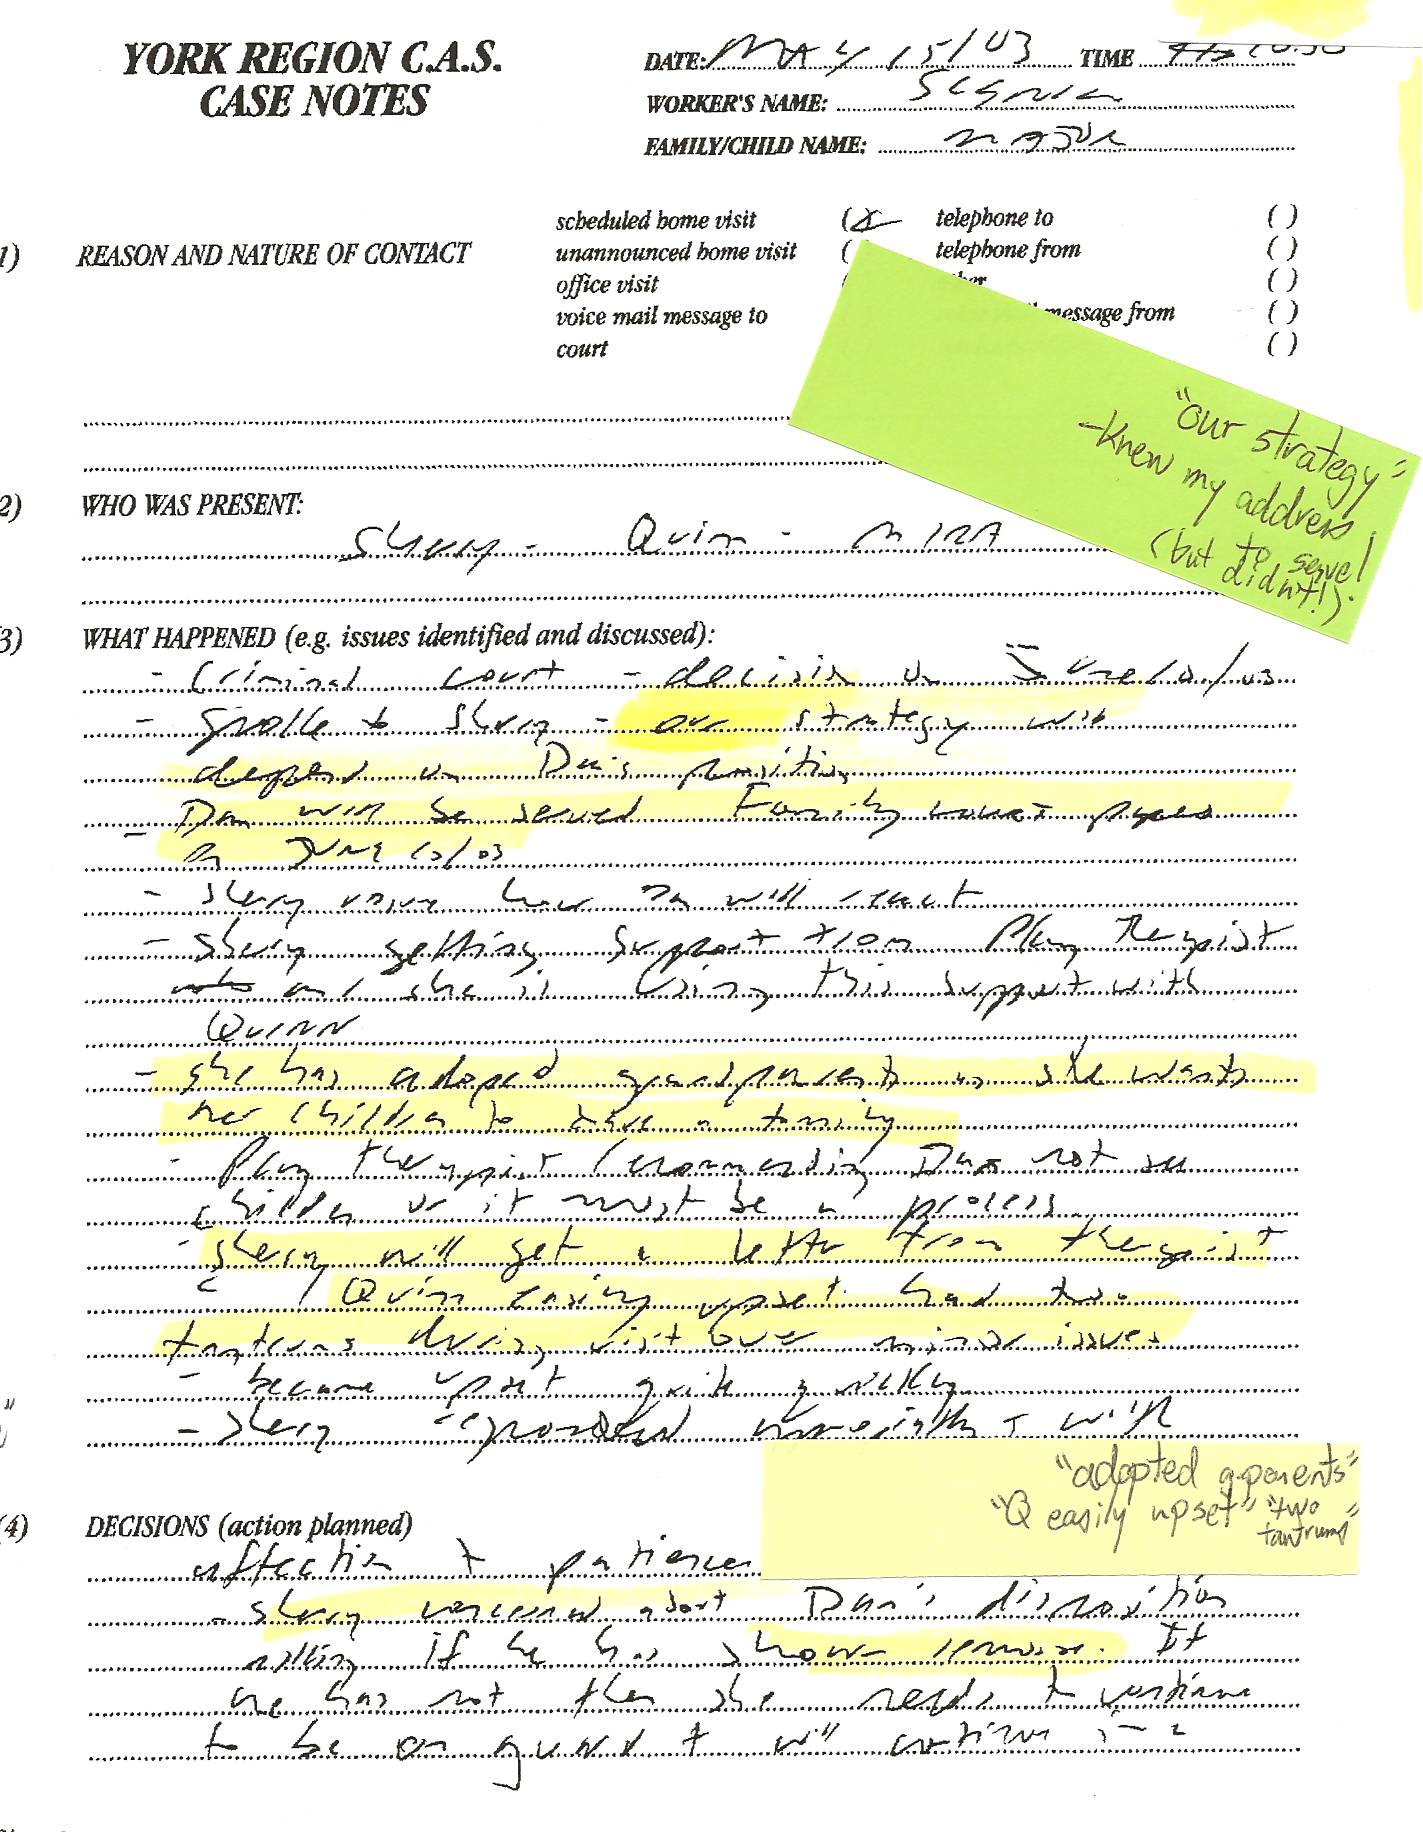 YORK REGION C.A.S.
CASE NOTES
DATE: MAY 15/03 TIME 10:30
WORKER'S NAME:
FAMILY/CHILD NAME:
1) REASON AND NATURE OF CONTACT
scheduled home visit (x) telephone to ( )
unannounced home visit ( telephone from ( )
office visit ( ther ( )
voice mail message to message from ( )
court ( )
"our strategy"
- Knew my address
(but to serve!
didn't!).
2) WHO WAS PRESENT:
Sherry - Quinn - MIRA
3) WHAT HAPPENED (e.g. issues identified and discussed):
- Criminal court - decision on June 12/03
- spoke to Sherry - our strategy will
depend on Dan's position
- Dan will be served Family court papers
on June 12/03
- Sherry how Dan will react
- Sherry getting support from Play Therapist
and she is using this support with
Quinn
- she has adoped grandparents as she wants
her children to have a family
- Play therapist recommending Dan not see
children or it must be a process
- Sherry will get a letter from therapist
Quinn easily upset had two
tantrums during visit over minor issues
- became upset quite quickly
- Sherry responded with
"adopted g.parents"
"Q easily upset" "two
tantrums"
4) DECISIONS (action planned)
affection + patience
- Sherry concerned about Dan's disposition
asking if he has shown remorse. If
he has not then she needs to continue
to be on guard + will continue